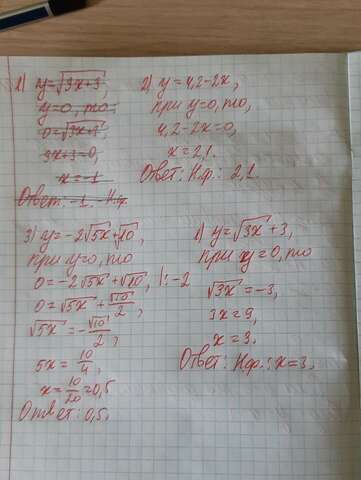 1) y=√3x+3,
y=0, то,
0=√3x+3
3x+3=0,
x=-1
Ответ: -1. - Н.ф.
2) y=4,2-2x,
при y=0, то,
4,2-2x=0,
x=2,1.
Ответ: Н.ф.: 2,1.
3) y=-2√5x+√10,
при y=0, то
0=-2√5x+√10, |:-2
0=√5x+√10/2,
√5x=-√10/2,
5x=10/4,
x=10/20=0,5
Ответ: 0,5.
1) y=√3x+3,
при y=0, то
√3x=-3,
3x=9,
x=3.
Ответ: Н.ф.: x=3.